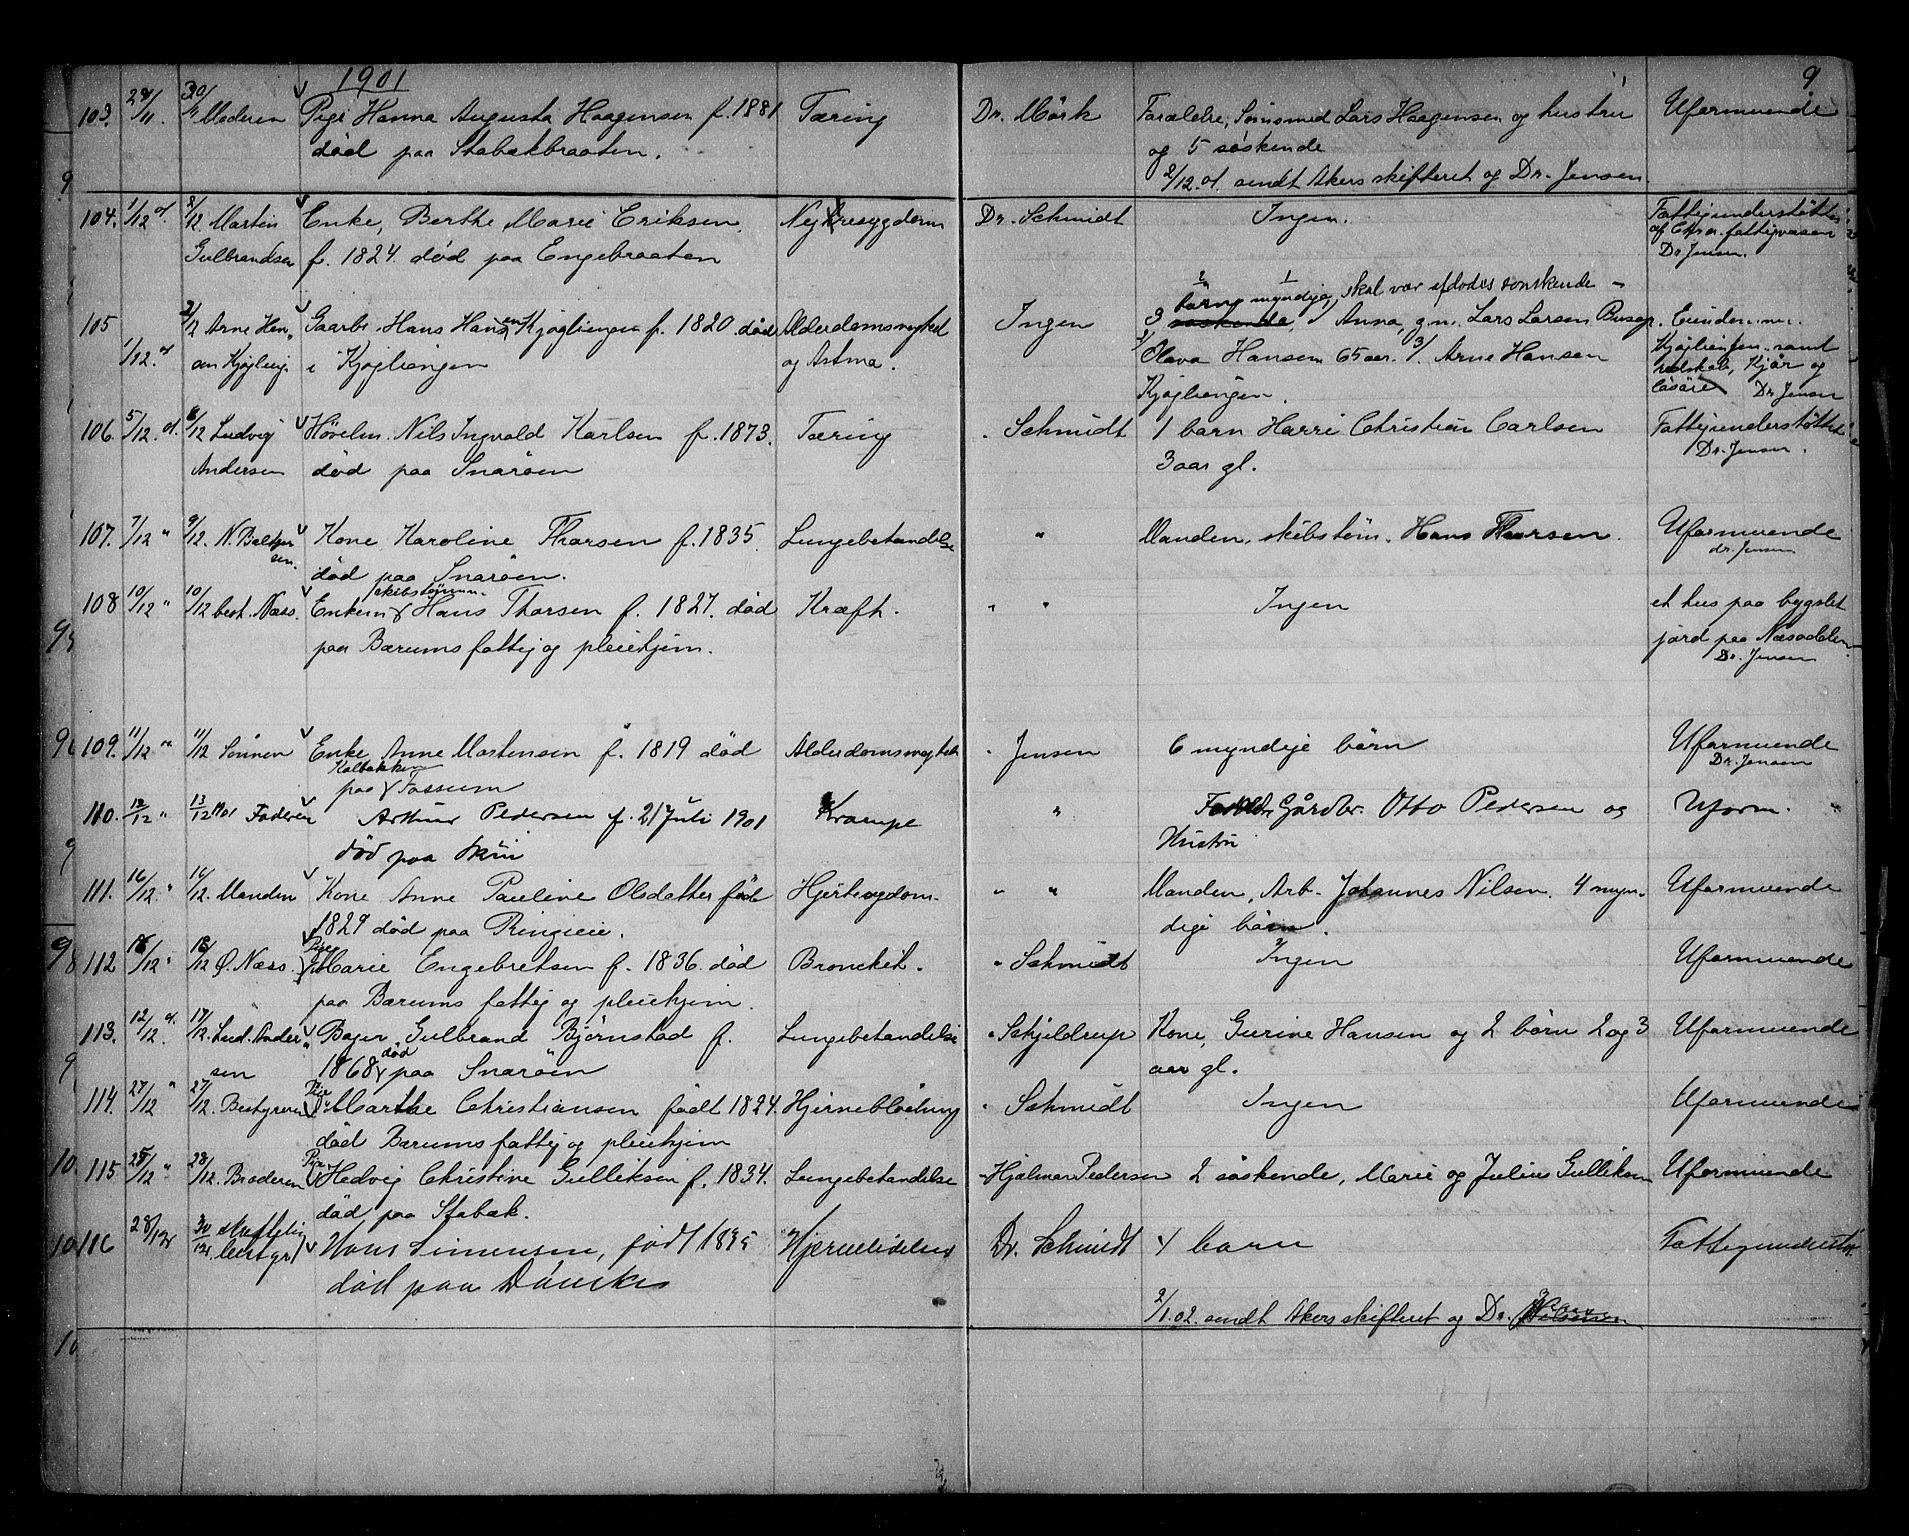 1901
9
103. 29/11 30/11 Moderen Pige Hanna Augusta Haagensen f. 1881 Tæring Dr. Mörk Forældre, Lars Haagensen og hustru Uformuende
död paa Stabækbraaten. og 5 söskende
2/12.01. sendt Akers skifteret og Dr. Jensen.
104. 1/12 01. 2/12 Martin Enke, Berthe Marie Eriksen Nyresygdom Dr. Schmidt Ingen. Fattigunderstöttet
Gulbrandsen f. 1824. död paa Engebraaten af Chra. fattigvæsen
Dr. Jensen.
2 1
börn myndige, skal vær afdødes sønskende
105 2/12 Arne Han- Gaarbr. Hans Hansen Kjøgliengen f. 1820. död Alderdomssvaghed Ingen 3 søskende, 1/ Anna, g.m. Lars Larsen
1/12. 01 i Kjøgliengen og Astma. 2/ Olava Hansen 65 aar. 3/. Arne Hansen Kjøgliengen samt
Kjøgliengen. redskab, Kjör og
løsöre Dr. Jensen
106. 5/12. 01. 8/12 Ludvig Hövelm. Nils Ingvald Karlsen f. 1873. Tæring " Schmidt 1 barn Harri Christian Carlsen Fattigunderstöttet
Andersen död paa Snaröen 3 aar gl. Dr. Jensen.
107. 7/12 " 9/12. N. Kone Karoline Thorsen f. 1835. Lungebetændelse " Manden, skibstöm. Hans Thorsen. Uformuende
sen. död paa Snaröen. dr. Jensen
skibstömm.
108 10/12 " 10/12 best. Næss. Enkem. Hans Thorsen f. 1827. död Kræft. " " Ingen et hus paa bygslet
paa Bærums fattig og pleiehjem. jord paa Næsodden
Dr. Jensen
109. 11/12 " 11/12 Sönnen Enke Anne Mortensen f. 1819 död Alderdomssvaghed " Jensen 6 myndige börn Uformuende
Kolbakken
paa Fossum Dr. Jensen
110. 12/12 " 13/12 1901 Faderen Arthur Pedersen f. 21 Juli 1901 Krampe " Forældr. Gårdbr. Otto Pedersen og Uform. "
död paa Skui Hustru
111. 16/12. " 16/12. Manden Kone Anne Pauline Olsdatter født Hjertesygdom. " " Manden, Arb. Johannes Nilsen. 4 myn- Uformuende
1829 död paa Ringieie. dige börn.
Pige
112 18/12 " 18/12 Ø. Næss. Marie Engebretsen f. 1836. död Bronchit. " Schmidt Ingen Uformuende
paa Bærums fattig og pleiehjem.
113. 12/12. 01. 17/12. Lud. Ander- Bager Gulbrand Björnstad f. Lungebetændelse " Schjeldrup Kone, Gurine Hansen og 2 börn 2 og 3 Uformuende
sen 1868 död paa Snaröen aar gl.
Pige
114. 27/12 " 27/12. Bestyreren Marthe Christiansen födt 1824. Hjerneblödning " Schmidt Ingen Uformuende
död Bærums fattig og pleiehjem
Pige
115 25/12 " 28/12. Broderen Hedvig Christine Gulliksen f. 1834. Lungebetændelse " Hjalmar Pedersen 2 söskende, Marie og Julius Gulliksen Uformuende
död paa Stabæk.
116 28/12 30/12 bestyr. Hans Simensen, födt 1835 Hjernelidelse Dr. Schmidt 4 barn Fattigunderstöt.
död paa
2/1.02. sendt Akers skifteret og Dr.